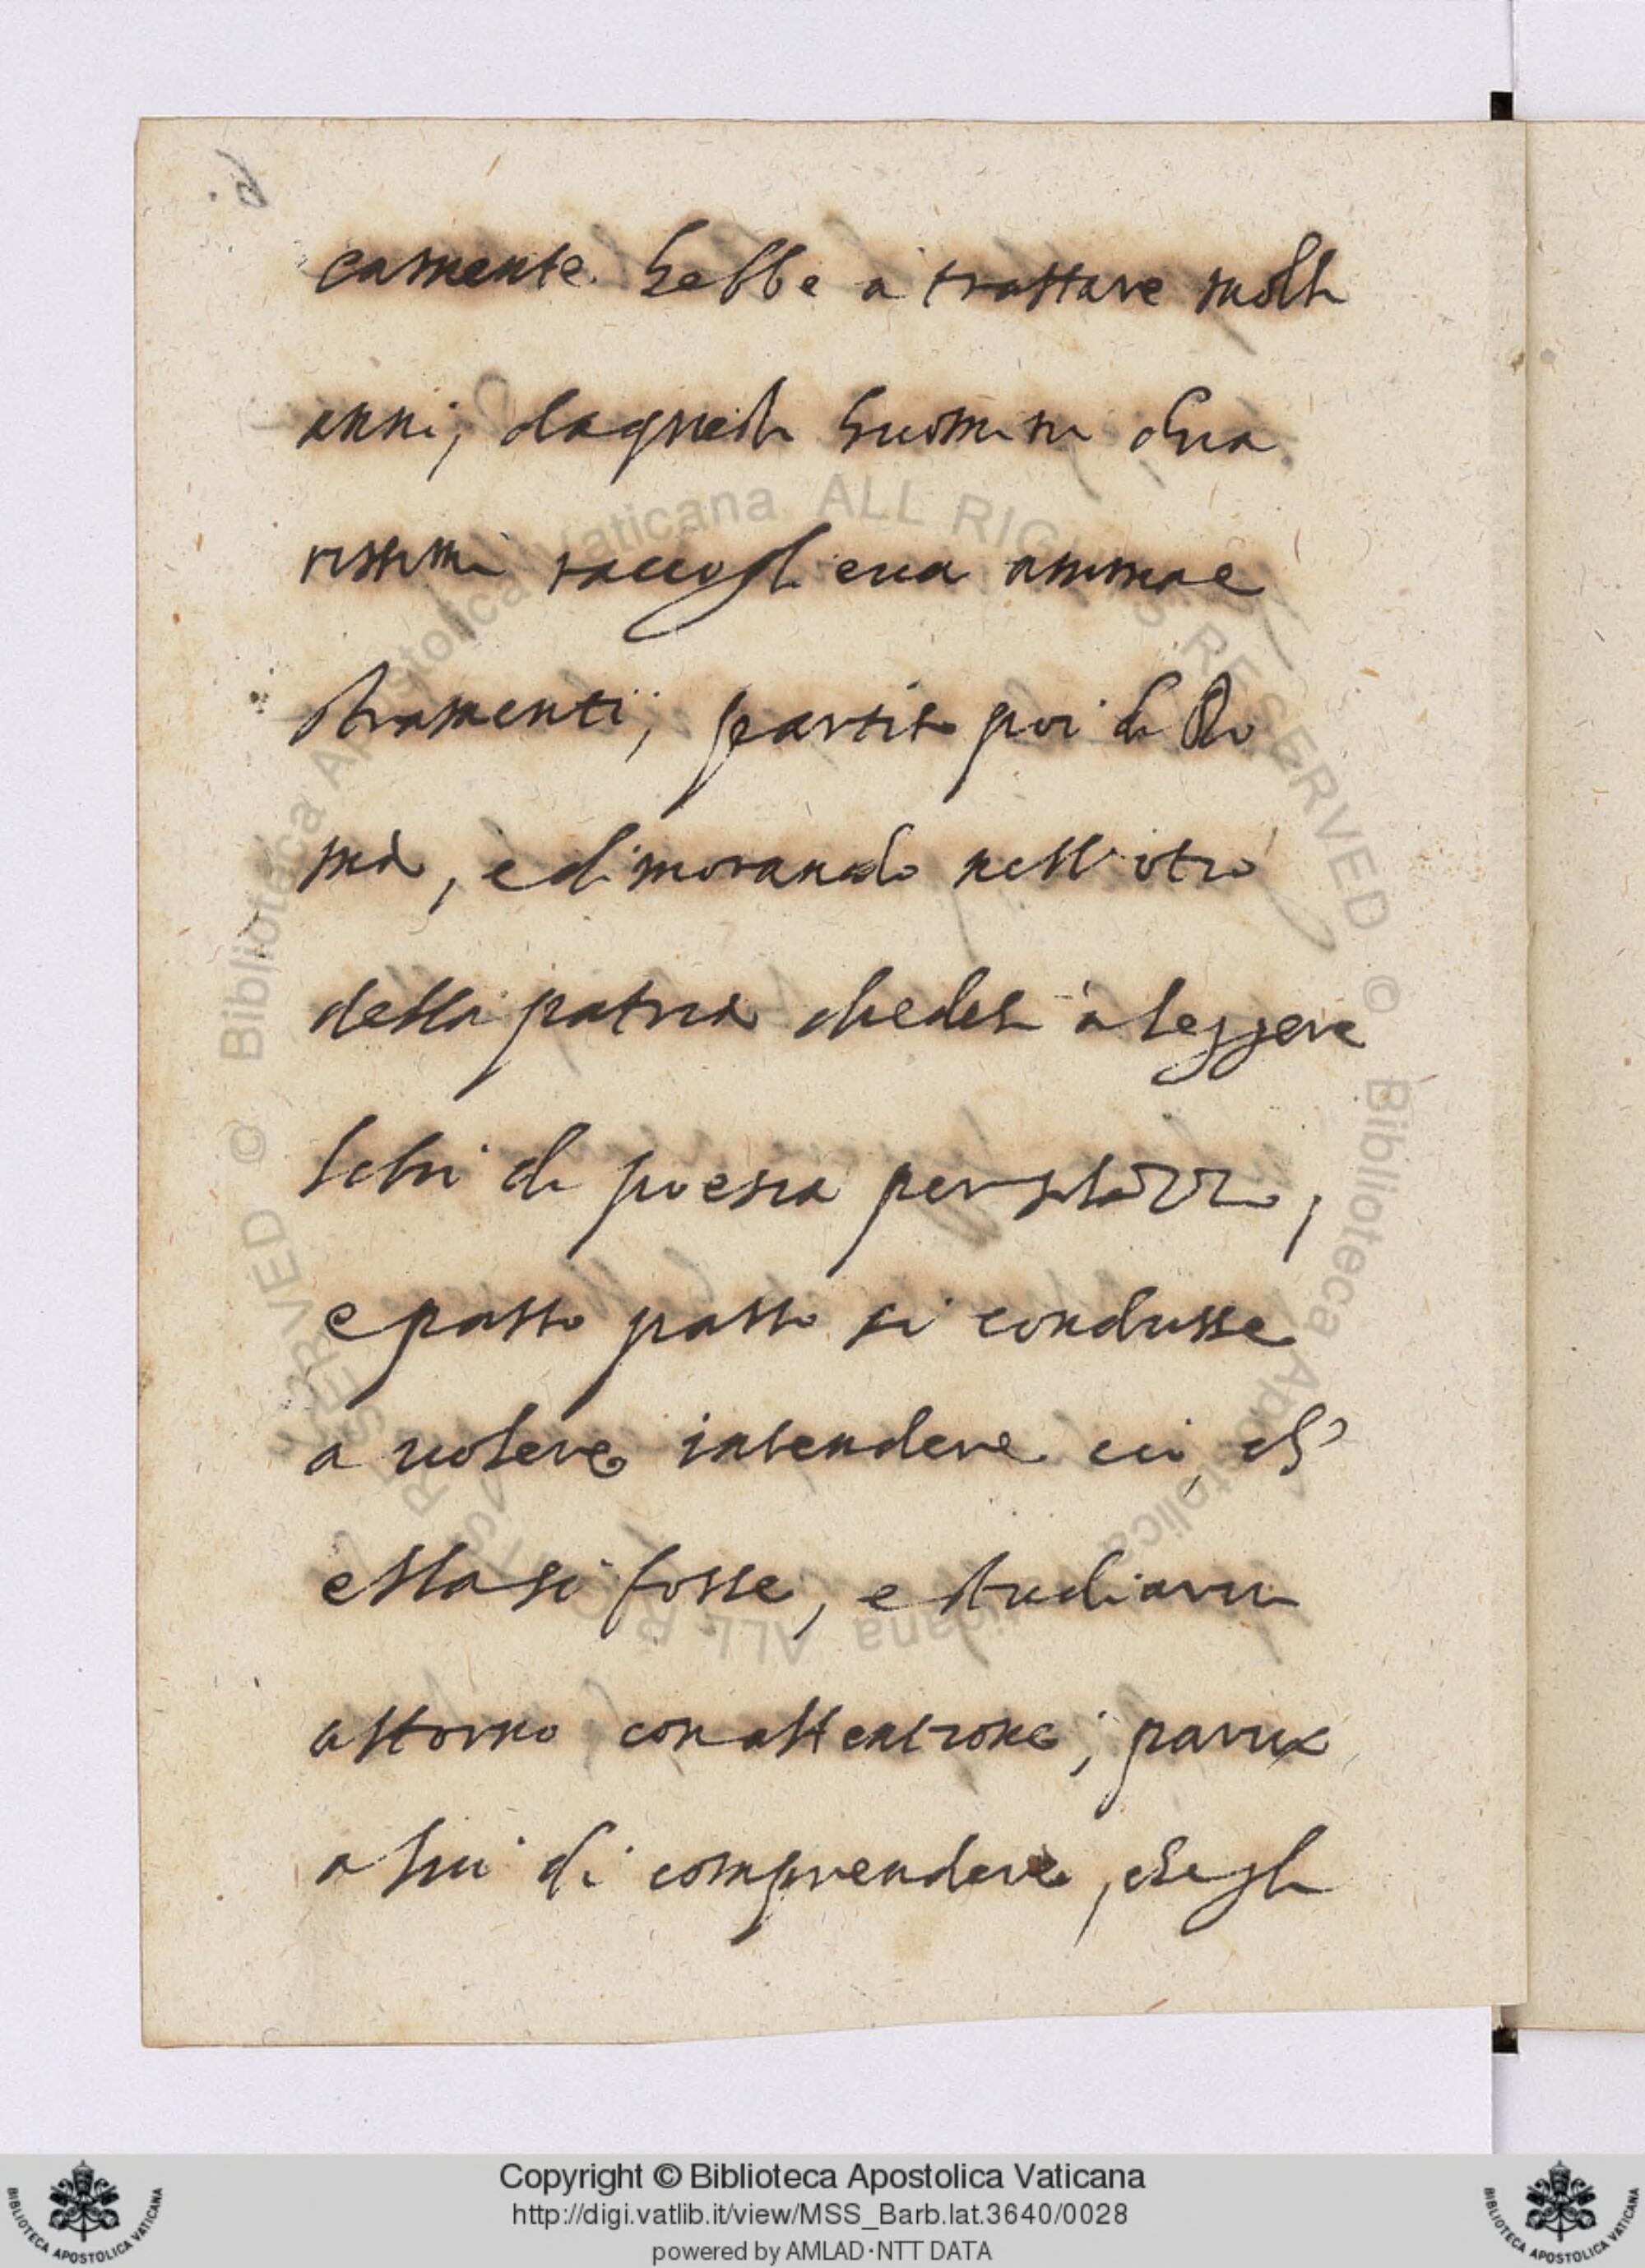 camente hebbe a trattare molti
anni, daquesti huomini chia
rissimi raccoglieva ammae
stramenti; partito poi di Ro
ma, e dimorando nell'otio
della patria diedesi a leggere
libri di poesia per solazzo,
e passo passo si condusse
a volere intendere ciò, ch'
ella si fosse, e studiarvi
attorno con attentione; parve
a lui di comprendere, ch'egli
Copyright © Biblioteca Apostolica Vaticana
http://digi.vatlib.it/view/MSS_Barb.lat.3640/0028
powered by AMLAD·NTT DATA
BIBLIOTECA APOSTOLICA VATICANA
BIBLIOTECA APOSTOLICA VATICANA
© Biblioteca Apostolica Vaticana ALL RIGHTS RESERVED
© Biblioteca Apostolica Vaticana ALL RIGHTS RESERVED